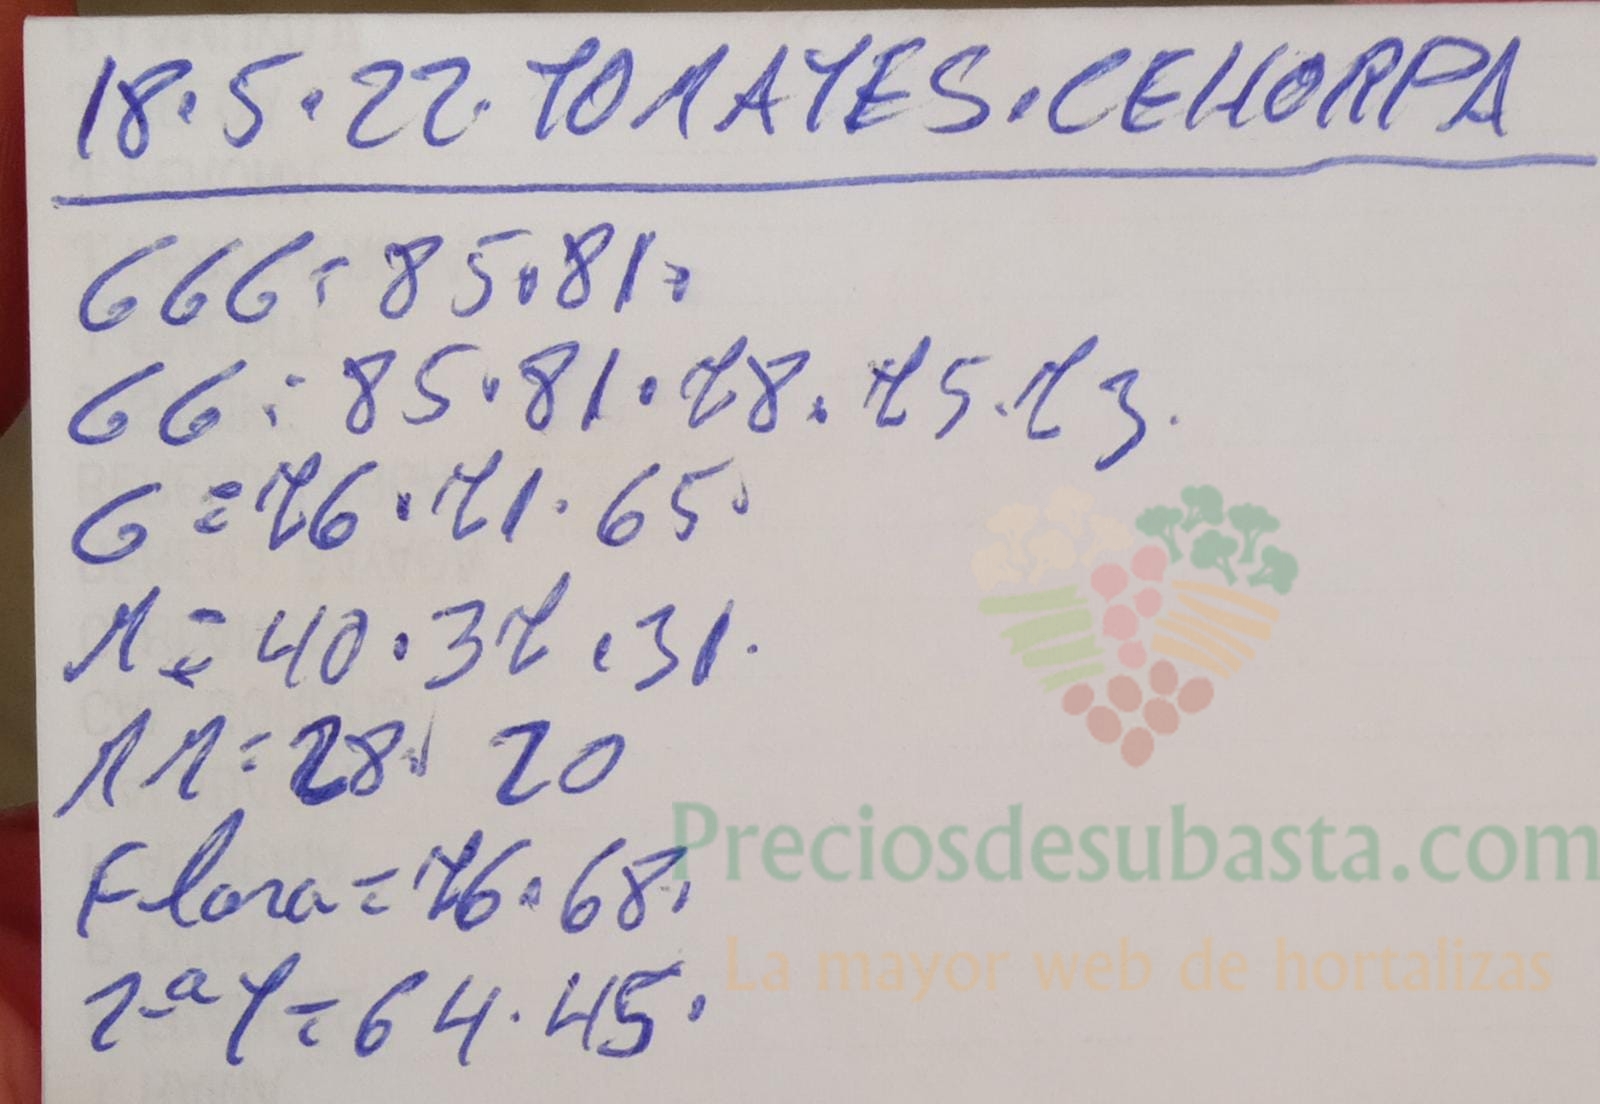 18.5.22. TOMATES.CEHORPA
GGG=85.81.
GG=85.81.78.75.73.
G=76.71.65.
M=40.37.31.
MM=28. 20
Flora=76.68.
2ªT=64.45.
Preciosdesubasta.com
La mayor web de hortalizas